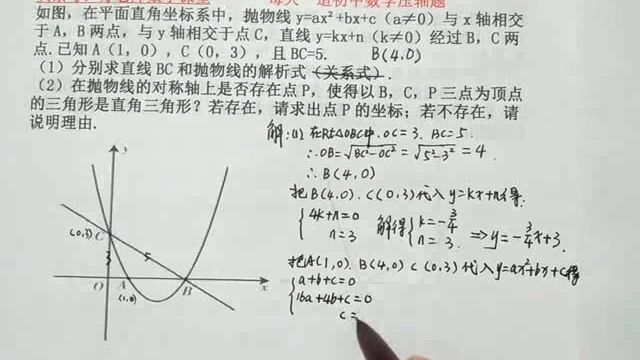 每天一道初中数学压轴题
如图，在平面直角坐标系中，抛物线 y=ax²+bx+c（a≠0）与 x 轴相交
于 A，B 两点，与 y 轴相交于点 C，直线 y=kx+n（k≠0）经过 B，C 两
点.已知 A（1，0），C（0，3），且 BC=5. B(4,0)
（1）分别求直线 BC 和抛物线的解析式（关系式）.
（2）在抛物线的对称轴上是否存在点 P，使得以 B，C，P 三点为顶点
的三角形是直角三角形？若存在，请求出点 P 的坐标；若不存在，请
说明理由.
解:(1) 在Rt△OBC中. OC=3. BC=5.
∴OB=√BC²-OC²=√5²-3²=4
∴B(4,0)
把B(4,0). C(0,3)代入y=kx+n得:
{4k+n=0
n=3
解得{k=-3/4
n=3.
⇒y=-3/4x+3.
把A(1,0). B(4,0) C(0,3)代入y=ax²+bx+c得
{a+b+c=0
16a+4b+c=0
c=
y
(0,3)
C
3
5
O
A
(1,0)
B
x